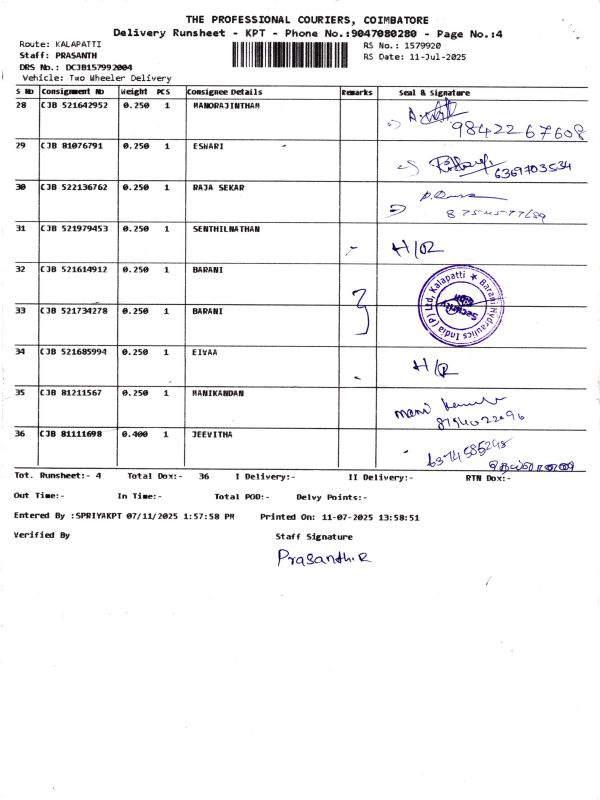 THE PROFESSIONAL COURIERS, COIMBATORE
Delivery Runsheet - KPT - Phone No.:9047080280 - Page No.:4
Route: KALAPATTI
RS No.: 1579920
Staff: PRASANTH
RS Date: 11-Jul-2025
DRS No.: DCJB157992004
Vehicle: Two Wheeler Delivery
S No Consignment No Weight PCS Consignee Details Remarks Seal & Signature
28 CJB 521642952 0.250 1 MANORAJINTHAM
9842267608
29 CJB 81076791 0.250 1 ESWARI
6369703534
30 CJB 522136762 0.250 1 RAJA SEKAR
31 CJB 521979453 0.250 1 SENTHILNATHAN
H/R
32 CJB 521614912 0.250 1 BARANI
Barani Hydraulics India (P) Ltd, Kalapatti
Security
33 CJB 521734278 0.250 1 BARANI
34 CJB 521685994 0.250 1 EIVAA
H/R
35 CJB 81211567 0.250 1 MANIKANDAN
mani
36 CJB 81111698 0.400 1 JEEVITHA
Tot. Runsheet:- 4 Total Dox:- 36 I Delivery:- II Delivery:- RTN Dox:-
Out Time:- In Time:- Total POD:- Delvy Points:-
Entered By :SPRIYAKPT 07/11/2025 1:57:58 PM Printed On: 11-07-2025 13:58:51
Verified By Staff Signature
Prasanth.R